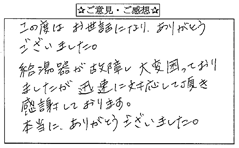 ☆ご意見・ご感想☆
この度はお世話になり、ありがとう
ございました。
給湯器が故障し大変困っており
ましたが迅速に対応して頂き
感謝しております。
本当に、ありがとうございました。